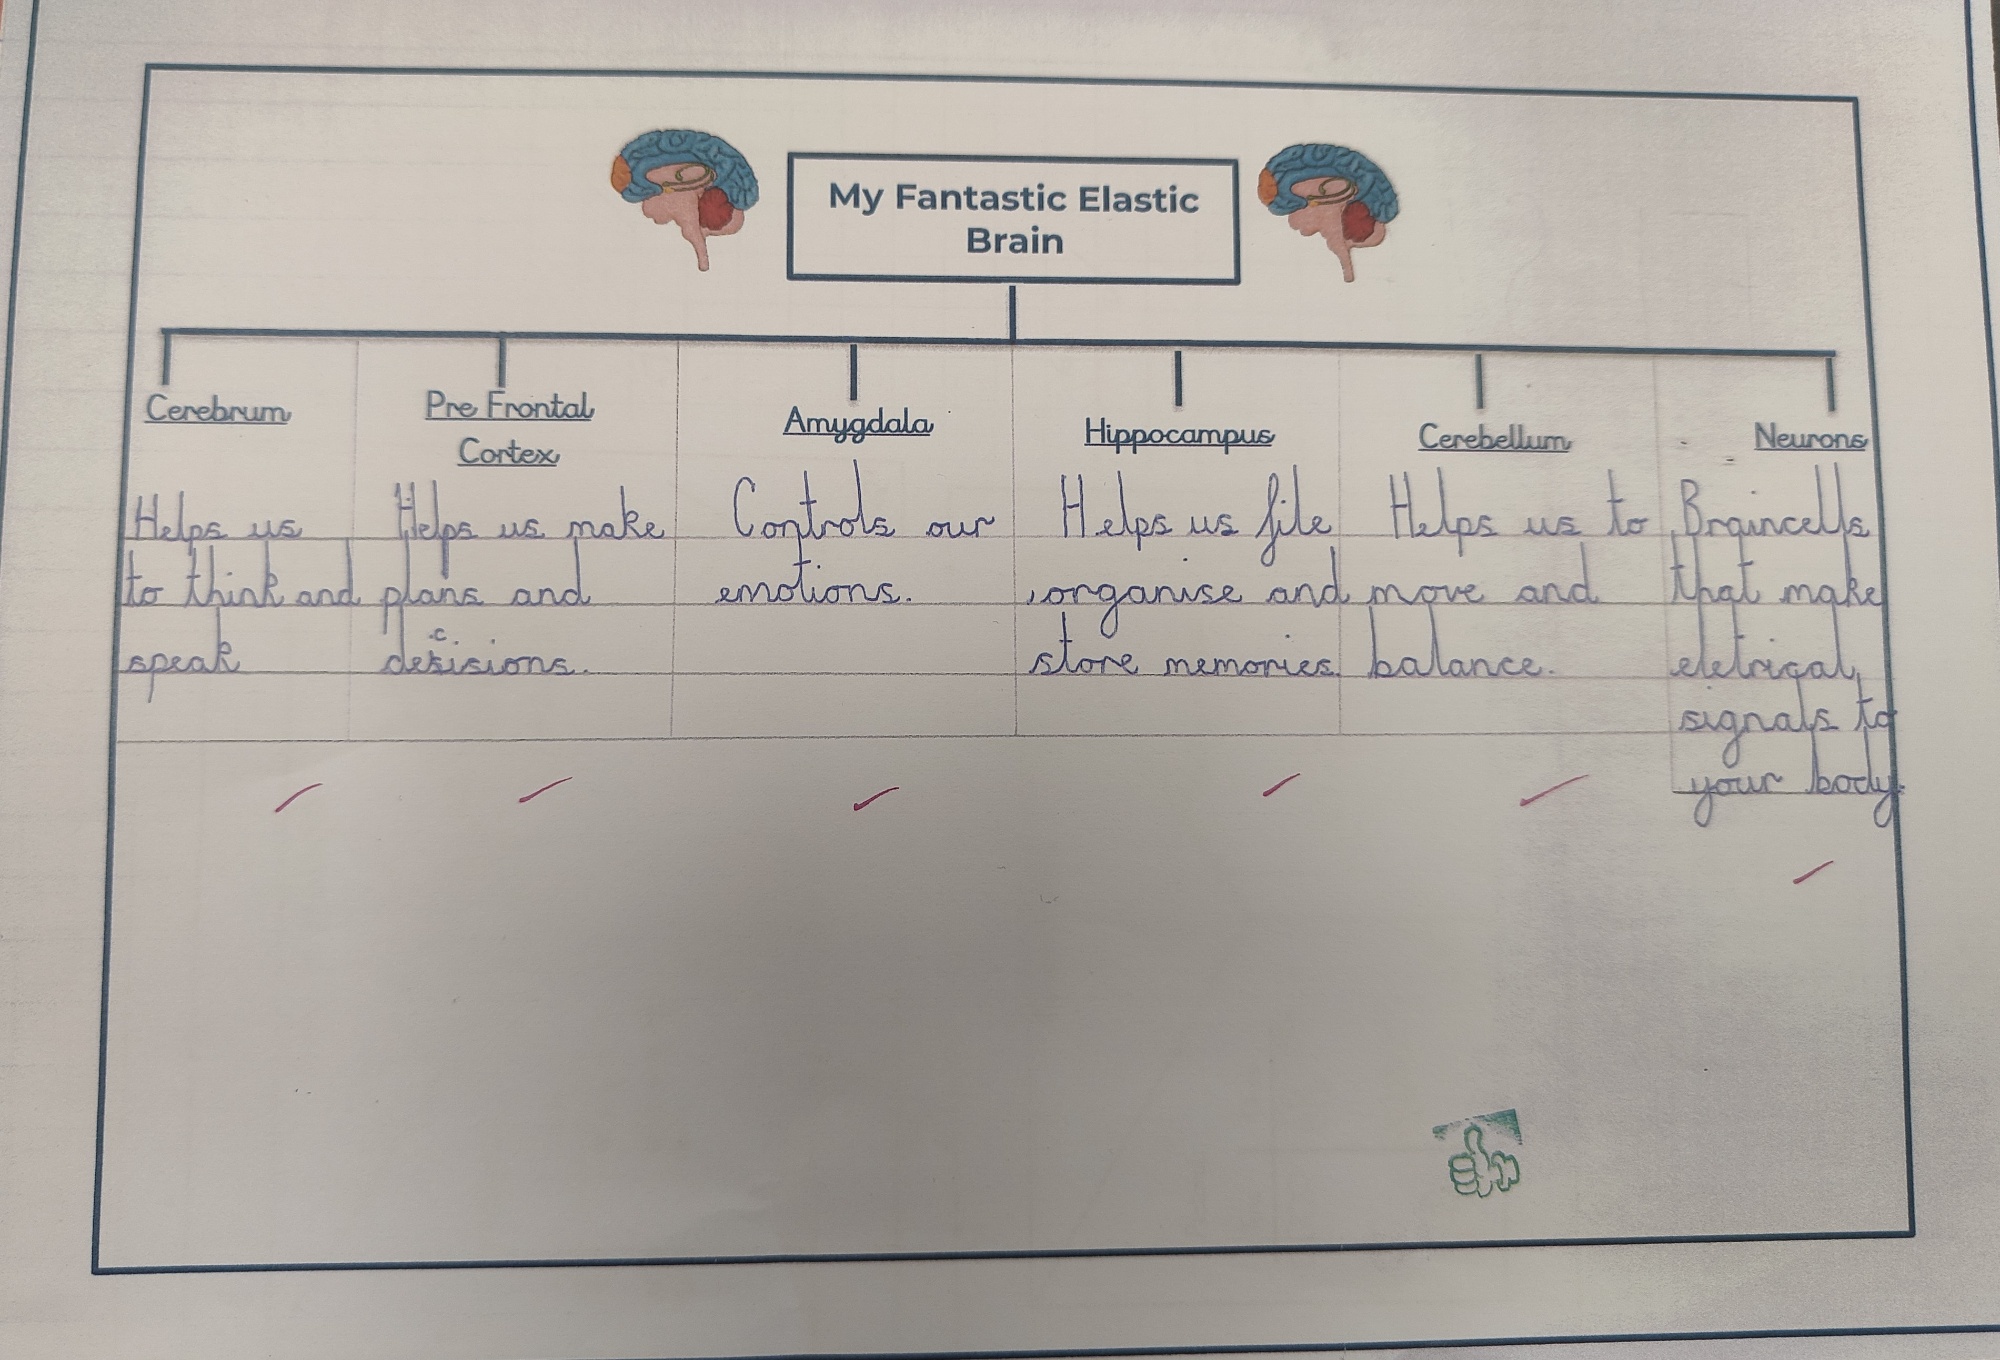 My Fantastic Elastic
Brain
Cerebrum
Helps us
to think and
speak
Pre Frontal
Cortex
Helps us make
plans and
c
desisions.
Amygdala
Controls our
emotions.
Hippocampus
Helps us file
,organise and
store memories.
Cerebellum
Helps us to
move and
balance.
Neurons
Braincells
that make
eletrical
signals to
your body.